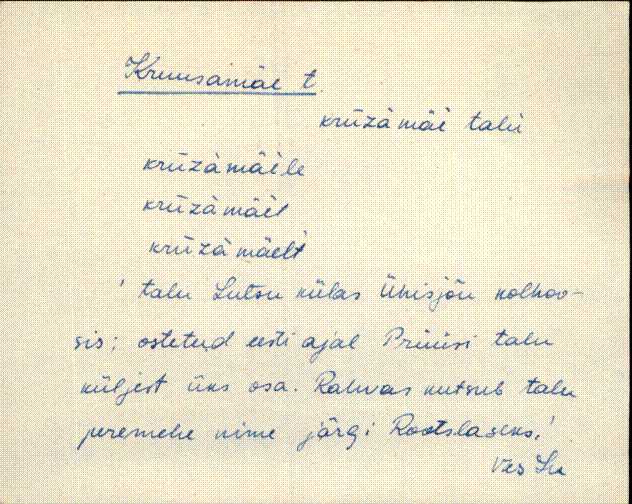 Kruusamäe t.
krūzȧmäė talu
krūzȧmäėle
krūzȧmäėl
krūzȧmäelt
' talu Lutsu külas Ühisjõu kolhoo-
sis; ostetud eesti ajal Prüüsi talu
küljest üks osa. Rahvas kutsub talu
peremehe nime järgi Rootslaseks.'
Ves Lu